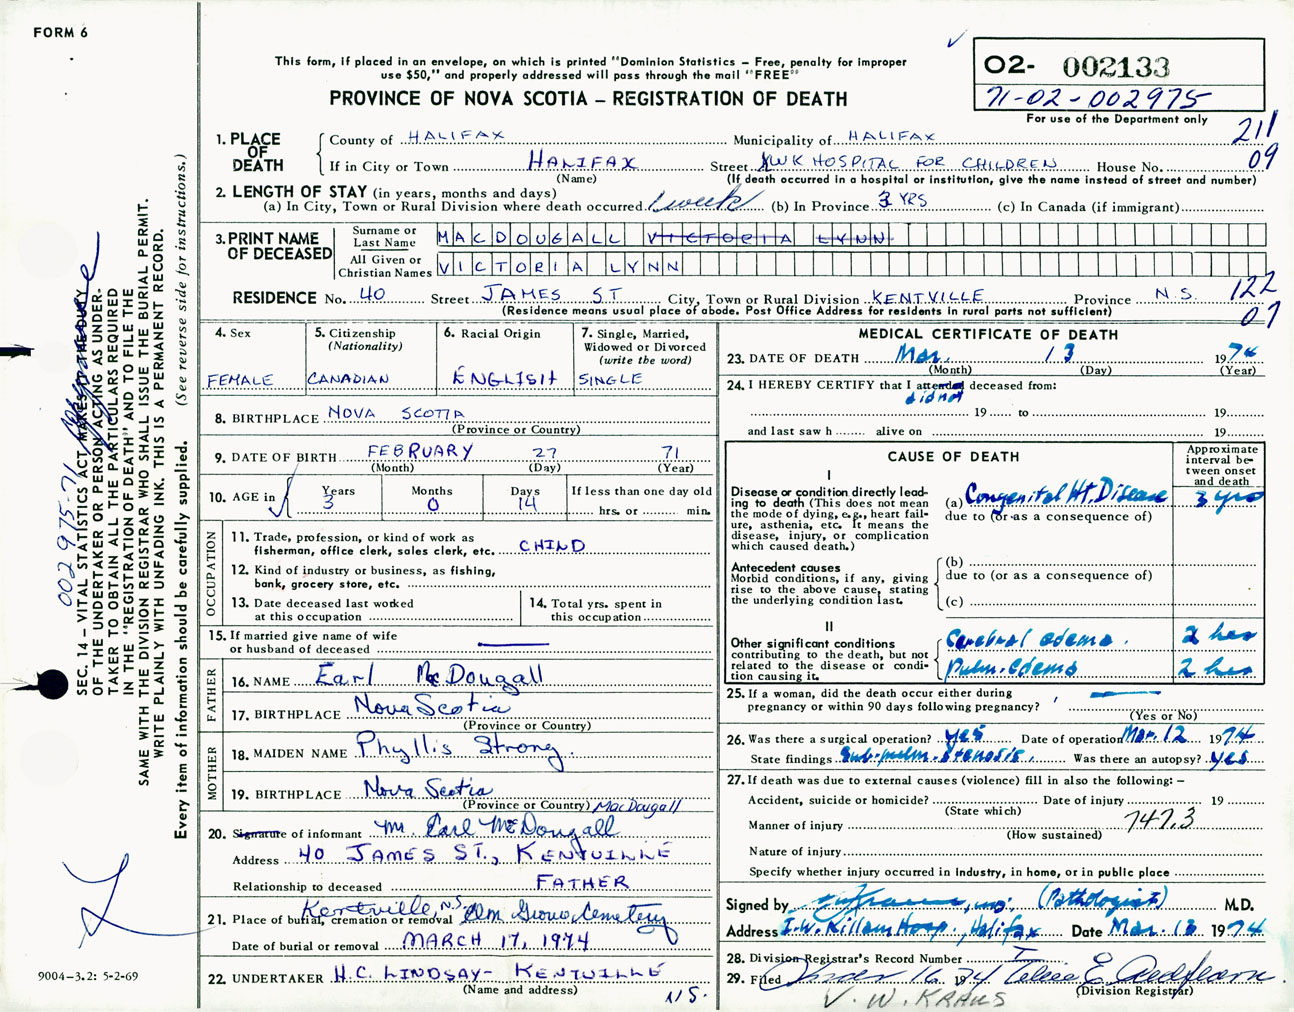 FORM 6
This form, if placed in an envelope, on which is printed "Dominion Statistics – Free, penalty for improper
use $50," and properly addressed will pass through the mail "FREE"
PROVINCE OF NOVA SCOTIA – REGISTRATION OF DEATH
O2- 002133
71-02-002975
For use of the Department only
211
09
1. PLACE OF DEATH
County of HALIFAX Municipality of HALIFAX
If in City or Town HALIFAX Street IWK HOSPITAL FOR CHILDREN House No.
(Name) (If death occurred in a hospital or institution, give the name instead of street and number)
2. LENGTH OF STAY (in years, months and days)
(a) In City, Town or Rural Division where death occurred 1 week (b) In Province 3 YRS (c) In Canada (if immigrant)
3. PRINT NAME OF DECEASED
Surname or Last Name MACDOUGALL VICTORIA LYNN
All Given or Christian Names VICTORIA LYNN
RESIDENCE No. 40 Street JAMES ST City, Town or Rural Division KENTVILLE Province N.S.
122
07
(Residence means usual place of abode. Post Office Address for residents in rural parts not sufficient)
4. Sex
FEMALE
5. Citizenship
(Nationality)
CANADIAN
6. Racial Origin
ENGLISH
7. Single, Married,
Widowed or Divorced
(write the word)
SINGLE
8. BIRTHPLACE NOVA SCOTIA
(Province or Country)
9. DATE OF BIRTH FEBRUARY 27 71
(Month) (Day) (Year)
10. AGE in
Years Months Days If less than one day old
3 0 14 hrs. or min.
OCCUPATION
11. Trade, profession, or kind of work as
fisherman, office clerk, sales clerk, etc. CHILD
12. Kind of industry or business, as fishing,
bank, grocery store, etc.
13. Date deceased last worked
at this occupation
14. Total yrs. spent in
this occupation
15. If married give name of wife
or husband of deceased
FATHER
16. NAME Earl MacDougall
17. BIRTHPLACE Nova Scotia
(Province or Country)
MOTHER
18. MAIDEN NAME Phyllis Strong.
19. BIRTHPLACE Nova Scotia
(Province or Country) MacDougall
20. Signature of informant Mr. Earl McDougall
Address 40 JAMES ST., KENTVILLE
Relationship to deceased FATHER
21. Place of burial, cremation or removal Kentville, N.S. Elm Grove Cemetery
Date of burial or removal MARCH 17, 1974
22. UNDERTAKER H.C. LINDSAY - KENTVILLE
(Name and address) N.S.
MEDICAL CERTIFICATE OF DEATH
23. DATE OF DEATH Mar. 13 1974
(Month) (Day) (Year)
24. I HEREBY CERTIFY that I attended deceased from:
did not
19 to 19
and last saw h alive on 19
CAUSE OF DEATH
Approximate
interval be-
tween onset
and death
I
Disease or condition directly lead-
ing to death (This does not mean
the mode of dying, e.g., heart fail-
ure, asthenia, etc. It means the
disease, injury, or complication
which caused death.)
(a) Congenital Ht. Disease 3 yrs
due to (or as a consequence of)
Antecedent causes
Morbid conditions, if any, giving
rise to the above cause, stating
the underlying condition last.
(b)
due to (or as a consequence of)
(c)
II
Other significant conditions
contributing to the death, but not
related to the disease or condi-
tion causing it.
Cerebral edema. 2 hrs
Pulm. edema 2 hrs
25. If a woman, did the death occur either during
pregnancy or within 90 days following pregnancy?
(Yes or No)
26. Was there a surgical operation? yes Date of operation Mar. 12 1974
State findings Sub-pulm. stenosis. Was there an autopsy? yes
27. If death was due to external causes (violence) fill in also the following: –
Accident, suicide or homicide? Date of injury 19
(State which)
Manner of injury 747.3
(How sustained)
Nature of injury
Specify whether injury occurred in Industry, in home, or in public place
Signed by (Pathologist) M.D.
Address I.W. Killam Hosp., Halifax Date Mar. 13 1974
28. Division Registrar's Record Number
29. Filed 16 1974
(Division Registrar)
V. W. KRAUS
SEC. 14 – VITAL STATISTICS ACT MAKES IT THE DUTY
OF THE UNDERTAKER OR PERSON ACTING AS UNDER-
TAKER TO OBTAIN ALL THE PARTICULARS REQUIRED
IN THE "REGISTRATION OF DEATH" AND TO FILE THE
SAME WITH THE DIVISION REGISTRAR WHO SHALL ISSUE THE BURIAL PERMIT.
WRITE PLAINLY WITH UNFADING INK. THIS IS A PERMANENT RECORD.
Every item of information should be carefully supplied. (See reverse side for instructions.)
002975-71
9004–3.2: 5-2-69